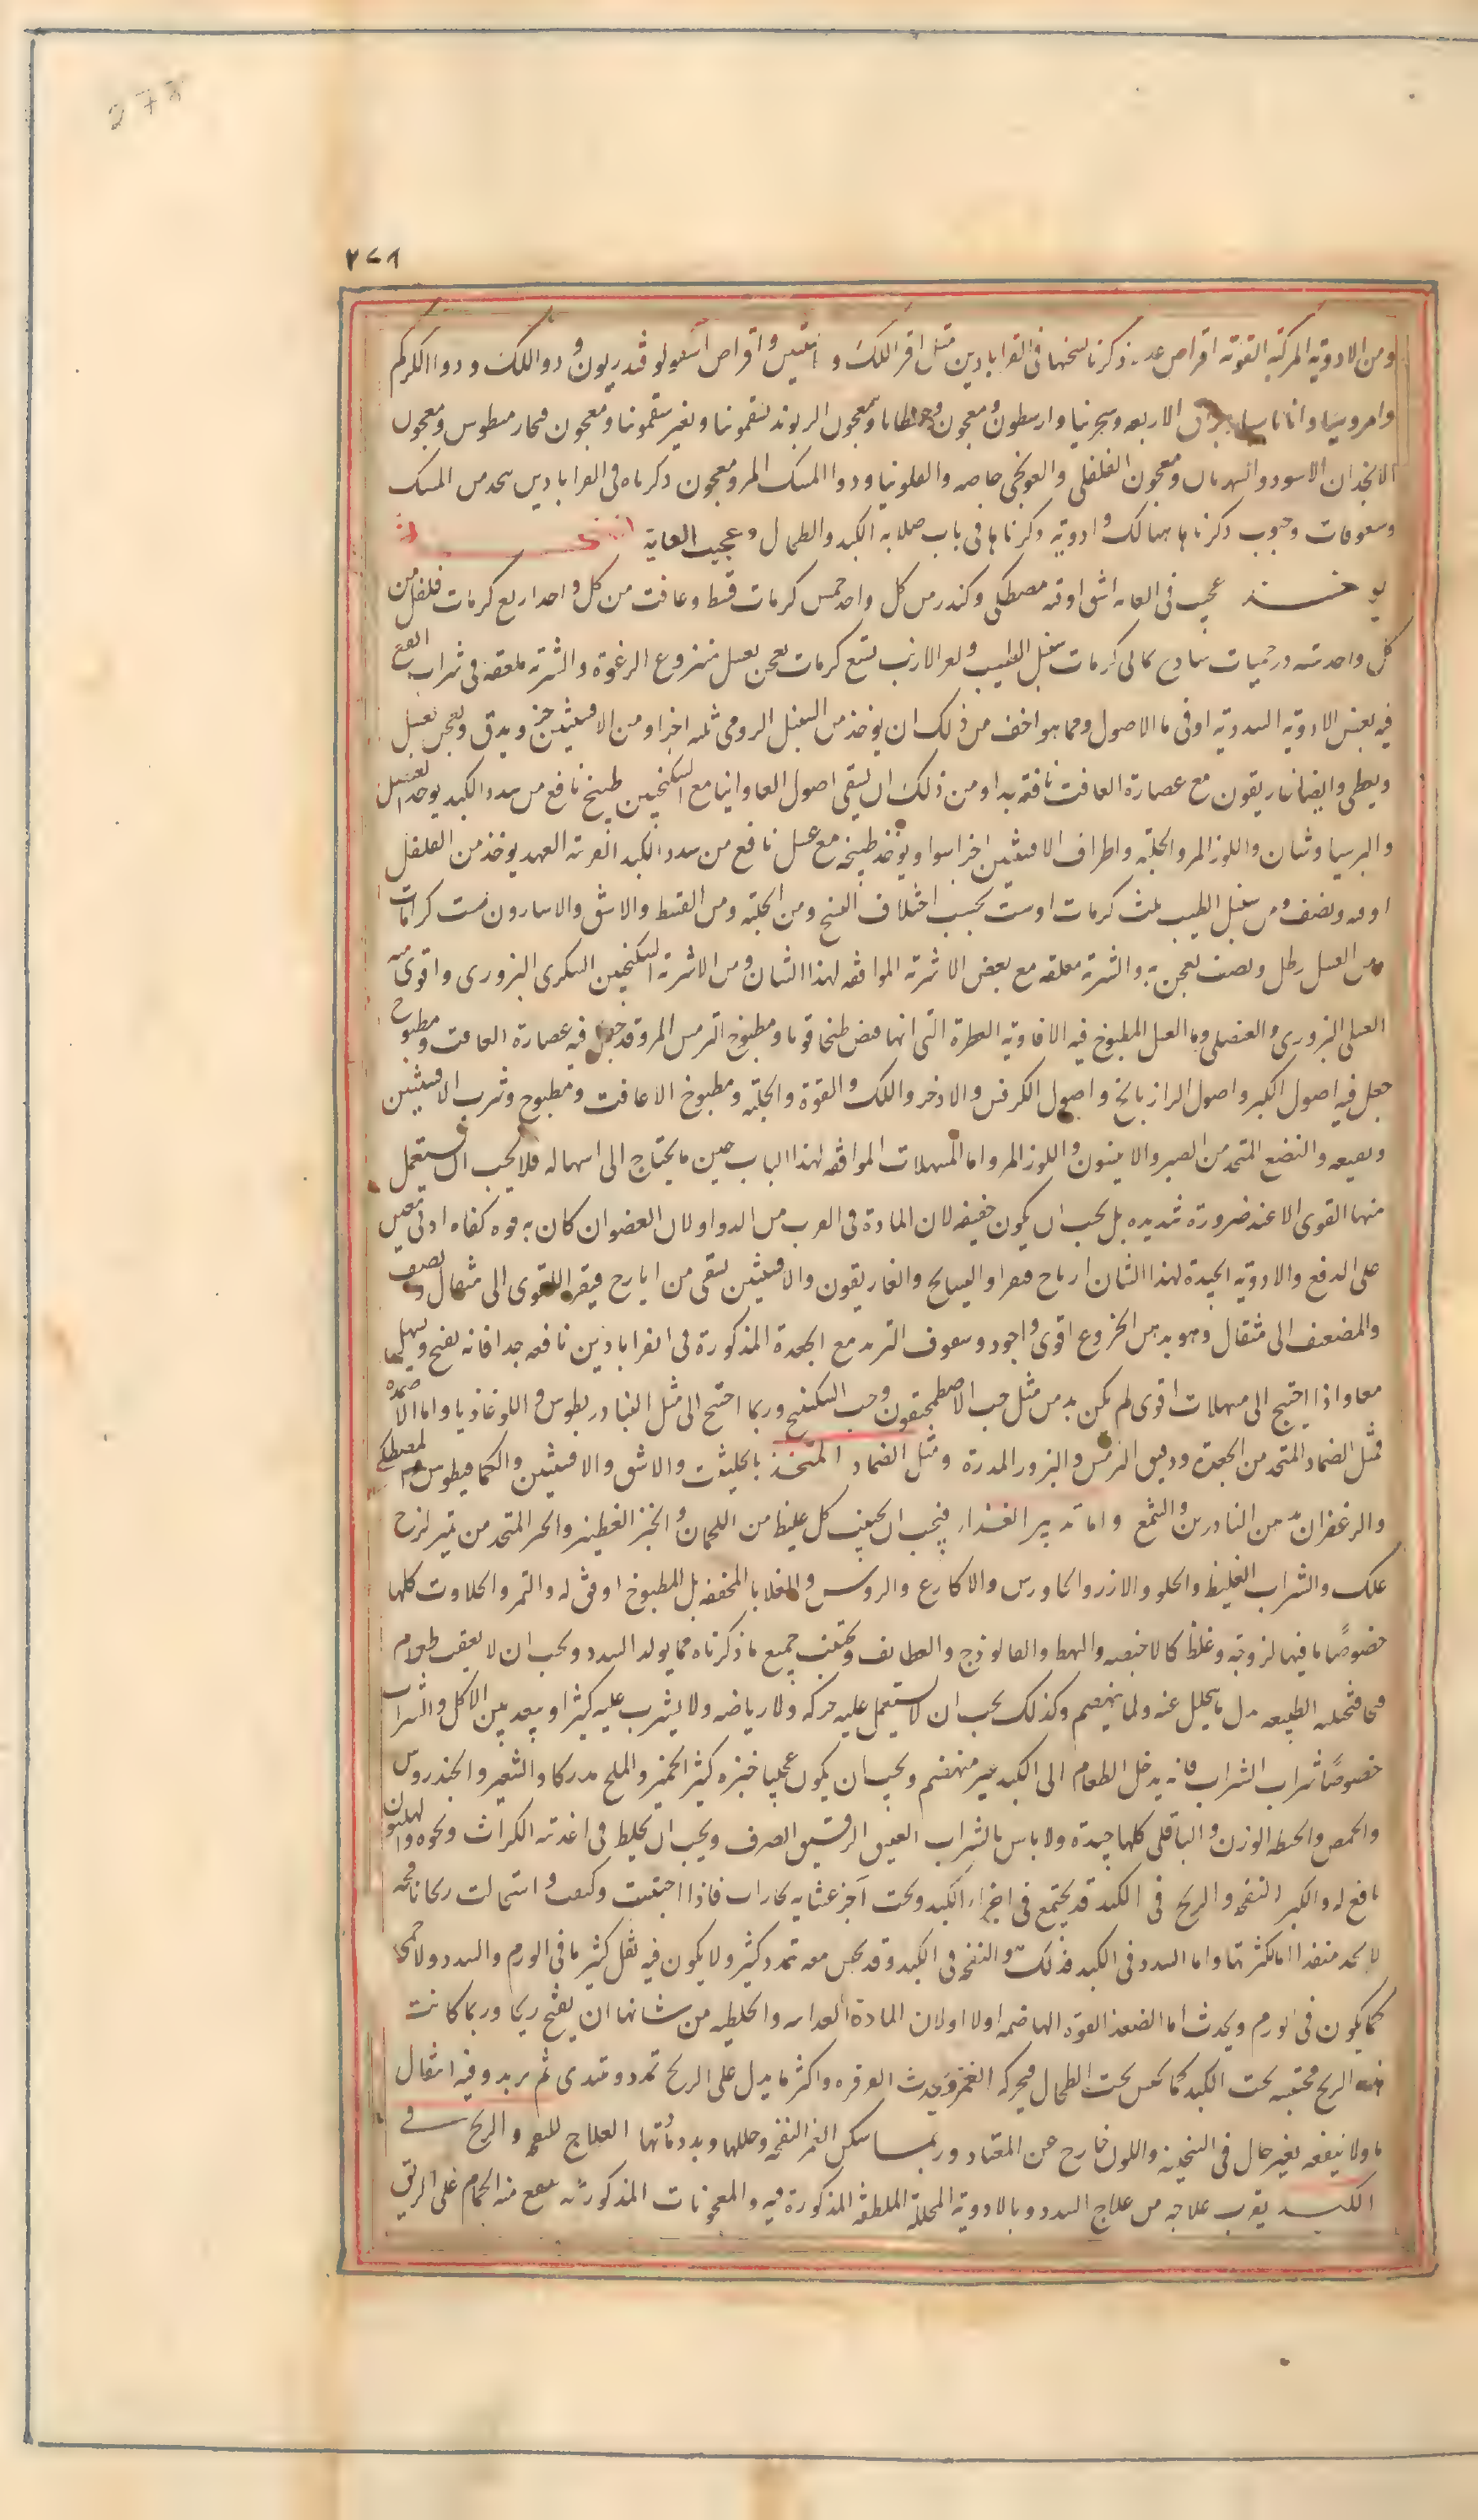 278
٢٧٨
ومن الادوية المركبة القوية اقراص عدة ذكرنا نسخها فى القرابادين مثل اقر اللك و افسنتين واقراص اسقولوقندريون و دواللك و دوا الكركم
وامروسيا واناناسيا الاربعه وسجرنيا وارسطون ومعجون ومعجون الريوند بسقمونيا وبغير سقمونيا ومعجون ومعجون
الانجدان الاسود و ومعجون الفلفلى والفودنجى خاصه والفلونيا ودوا المسك المر ومعجون ذكرناه فى القرابادين يتخذ من المسك
وسفوفات وحبوب ذكرناها هنالك وادوية ذكرناها فى باب صلابه الكبد والطحال و عجيب الغاية
عجيب فى الغايه اشق اوقيه مصطكى وكندر من كل واحد خمس كرمات قسط وغافت من كل واحد اربع كرمات فلفل من
كل واحد سته درخميات كرمات سنبل الطيب وبعر الارنب تسع كرمات يعجن بعسل منزوع الرغوة والشربة ملعقة فى شراب
فيه بعض الادويه السددية او فى ما الاصول ومما هو اخف من ذلك ان يوخذ من السنبل الرومى ثلثه اجزا ومن الافسنتين جزء ويدق ويعجن بعسل
ويعطى وايضا غاريقون مع عصارة الغافت نافعة جدا ومن ذلك ان يسقى اصول الفاوانيا مع السكنجبين طبيخ نافع من سدد الكبد يوخذ
والبرسياوشان واللوز المر والحلبة واطراف الافسنتين اجزا سوا ويوخذ طبيخه مع عسل نافع من سدد الكبد القريبه العهد يوخذ من الفلفل
اوقيه ونصف ومن سنبل الطيب ثلث كرمات او ست بحسب اختلاف النسخ ومن الحلبة ومن القسط والاشق والاسارون ست كرامات
ومن العسل رطل ونصف يعجن به والشربة معلقه مع بعض الاشربة الموافقه لهذا الشان ومن الاشربة السكنجبين السكرى البزورى واقوى منه
العسلى البزورى والعنصلى وما العسل المطبوخ فيه الافاويه العطرة التى ومطبوخ الترمس المر وقد جعل فيه عصارة الغافت ومطبوخ
جعل فيه اصول الكبر واصول الرازيانج واصول الكرفس والاذخر واللك والفوة والحلبة ومطبوخ الاغافت ومطبوخ وشرب الافسنتين
ونقيعه والنقيع المتخذ من الصبر والانيسون واللوز المر واما المسهلات الموافقه لهذا الباب حين ما يحتاج الى اسهاله فلا يجب ان يستعمل
منها القوى الا عند ضرورة شديده بل يجب ان يكون خفيفه لان المادة فى القرب من الدوا ولان العضو ان كان به قوه كفاه ادنى معين
على الدفع والادويه الجيدة لهذا الشان ايارج فيقرا والبسايج والغاريقون والافسنتين يسقى من ايارج فيقرا للقوى الى مثقال ونصف
والمضعف الى مثقال وهو بدهن الخروع اقوى واجود وسفوف التربد مع الجعدة المذكورة فى القرابادين نافعه جدا فانه يفتح ويسهل
معا واذا احتيج الى مسهلات اقوى لم يكن بد من مثل حب الاصطمحيقون وحب السكبينج وربما احتيج الى مثل التيادريطوس واللوغاذيا واما الاضمدة
فمثل الضماد المتخذ من الجعدة ودقيق الترمس والبزور المدرة ومثل الضماد المتخذ بالحلتيت والاشق والافسنتين والكمافيطوس والمصطكى
والزعفران من الناردين والشمع واما تدبير الغذاء فيجب ان يجتنب كل غليظ من اللحمان والخبز الفطير والخبز المتخذ من لزج
علك والشراب الغليظ والحلو والارز والجاورس والاكارع والروس والقلايا المجففه بل المطبوخ اوفق له والتمر والحلاوت كلها
خصوصا ما فيها لزوجة وغلظ كالاخبصه والبهط والفالوذج والقطايف ويجتنب جميع ما ذكرناه مما يولد السدد ويجب ان لا يعقب طعام
الطبيعه ما يتحلل عنه ولما ينهضم وكذلك يجب ان لا يستعمل عليه حركه ولا رياضه ولا يشرب عليه كثيرا ويبعد بين الاكل والشراب
خصوصا شراب الشراب فانه يدخل الطعام الى الكبد غير منهضم ويجب ان يكون عجين خبزه كثير الخمير والملح مدركا والشعير والخندروس
والحمص والحنطه الوزن والباقلى كلها جيدة ولا باس بالشراب العتيق الرقيق الصرف ويجب ان يخلط فى اغذيته الكراث ونحوه والهليون
نافع له والكبر النفخه والريح فى الكبد قد يجتمع فى اجزاء الكبد وتحت اجزاء غشايه بخارات فاذا احتقنت وكثفت واستحالت ريحا نافخه
لا يجد منفذا اما لكثرتها واما السدد فى الكبد فذلك والنفخه فى الكبد وقد يحس معه تمدد كثير ولا يكون فيه ثقل كثير ما فى الورم والسدد ولا حمى
كما يكون فى الورم ويحدث اما لضعف القوة الهاضمه اولا اولان المادة الغذاييه والخلطيه من شانها ان يفتح ريحا وربما كانت
هذه الريح محتبسه تحت الكبد كما يحس تحت الطحال فيحركه الغمز ويحدث القرقره واكثر ما يدل على الريح تمدد ومتدى ثم يزيد وفيه انتقال
ما ولا يتبعه بغير حال فى السحنه واللون خارج عن المعتاد وربما سكن الغمز النفخه وحللها وبددماتها العلاج للنفخه والريح فى
الكبد يقرب علاجه من علاج السدد وبالادوية المحللة الملطفه المذكورة فيه والمعجونات المذكورة ينفع منه الحمام على الريق